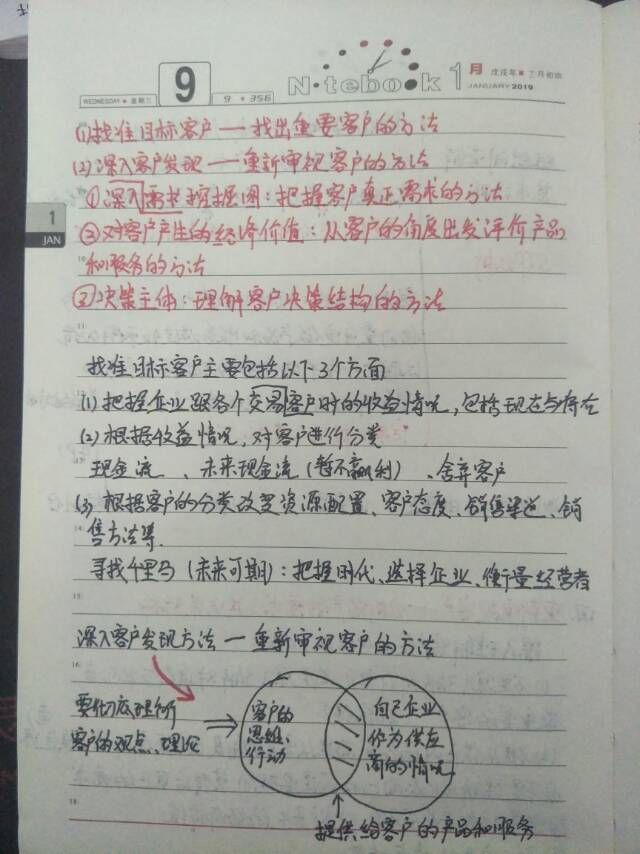 WEDNESDAY 星期三
9
9 · 356
N·tebook
1月
戊戌年 十二月初四
JANUARY 2019
(1)找准目标客户——找出重要客户的方法
(2)深入客户发现——重新审视客户的方法
①深入需求挖掘图：把握客户真正需求的方法
②对客户产生的经济价值：从客户的角度出发评价产品
和服务的方法
③决策主体：理解客户决策结构的方法
1
JAN
找准目标客户主要包括以下3个方面
(1)把握企业跟各个交易客户时的收益情况，包括现在与将在
(2)根据收益情况，对客户进行分类
现金流、未来现金流（暂不赢利）、舍弃客户
(3)根据客户的分类改变资源配置、客户态度、销售渠道、销
售方法等.
寻找千里马（未来可期）：把握时代、选择企业、衡量经营者
深入客户发现方法——重新审视客户的方法
要彻底理解
客户的观点、理论
客户的
思维、
行动
自己企业
作为供应
商的情况
提供给客户的产品和服务